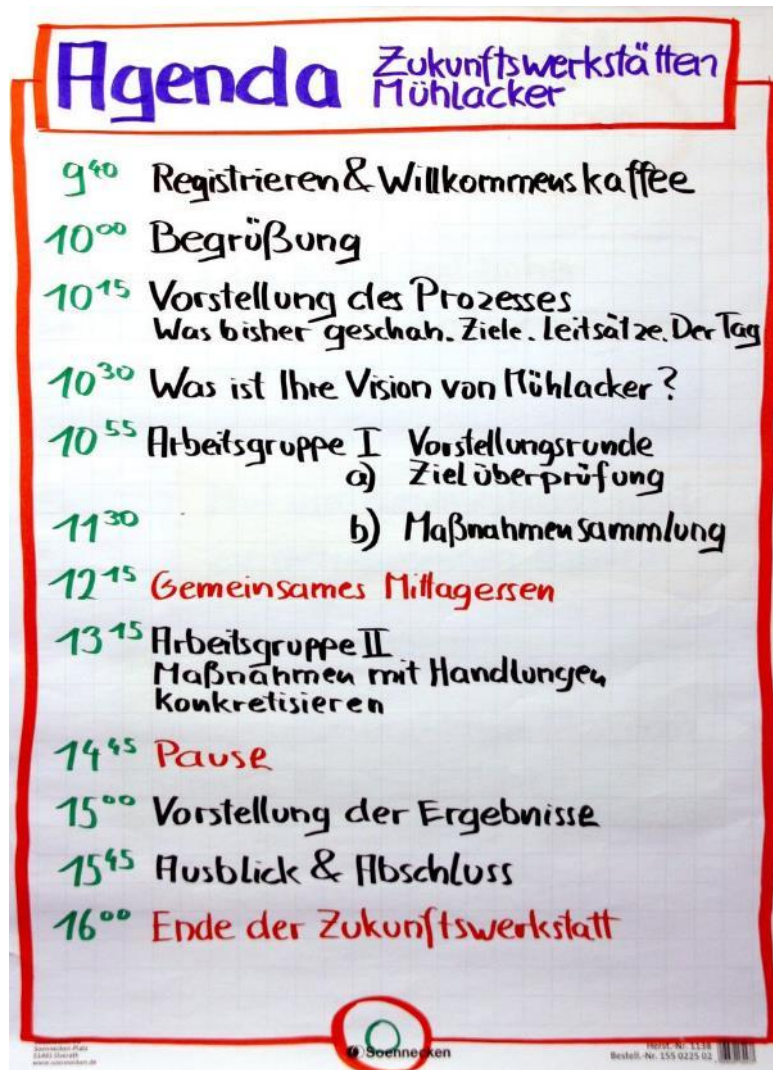 Agenda Zukunftswerkstätten
Mühlacker
9⁴⁰ Registrieren & Willkommenskaffee
10⁰⁰ Begrüßung
10¹⁵ Vorstellung des Prozesses
Was bisher geschah. Ziele. Leitsätze. Der Tag
10³⁰ Was ist Ihre Vision von Mühlacker?
10⁵⁵ Arbeitsgruppe I Vorstellungsrunde
a) Zielüberprüfung
11³⁰ b) Maßnahmensammlung
12¹⁵ Gemeinsames Mittagessen
13¹⁵ Arbeitsgruppe II
Maßnahmen mit Handlungen
konkretisieren
14⁴⁵ Pause
15⁰⁰ Vorstellung der Ergebnisse
15⁴⁵ Ausblick & Abschluss
16⁰⁰ Ende der Zukunftswerkstatt
Soennecken-Platz
51491 Overath
www.soennecken.de
Soennecken
Herst.-Nr. 1138
Bestell.-Nr. 155 0225 02